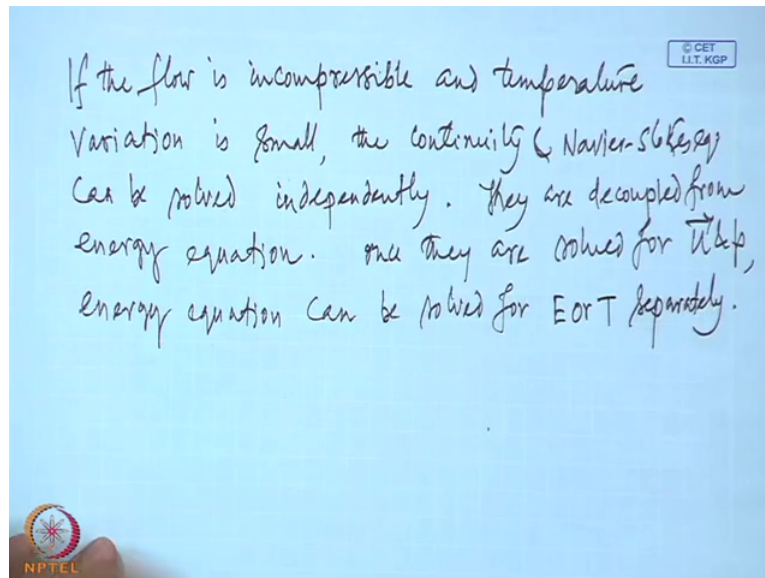 © CET
I.I.T. KGP
If the flow is incompressible and temperature
variation is small, the continuity & Navier-Stokes eqs
can be solved independently. They are decoupled from
energy equation. Once they are solved for u⃗ & p,
energy equation can be solved for E or T separately.
NPTEL